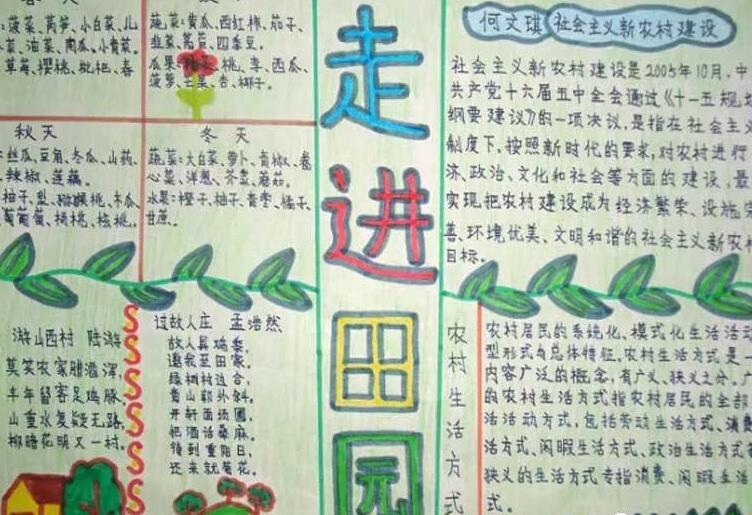 ：菠菜、莴笋、小白菜、儿
菜、油菜、南瓜、小青菜。
草莓、樱桃、枇杷、春
蔬菜：黄瓜、西红柿、茄子、
韭菜、莴苣、四季豆。
瓜果：桃子、桃、李、西瓜、
菠萝、芒果、杏、椰子。
秋天
：丝瓜、豆角、冬瓜、山药、
、辣椒、莲藕。
柚子、梨、猕猴桃、木瓜
葡萄、杨桃、核桃、
冬天
蔬菜：大白菜、萝卜、青椒、卷
心菜、洋葱、芥菜、蘑菇。
水果：橙子、柚子、青枣、橘子、
甘蔗。
游山西村 陆游
莫笑农家腊酒浑，
丰年留客足鸡豚。
山重水复疑无路，
柳暗花明又一村。
过故人庄 孟浩然
故人具鸡黍，
邀我至田家。
绿树村边合，
青山郭外斜。
开轩面场圃，
把酒话桑麻。
待到重阳日，
还来就菊花。
走进田园
何文琪 社会主义新农村建设
社会主义新农村建设是2005年10月，中
共产党十六届五中全会通过《十一五规划
纲要建议》的一项决议，是指在社会主
制度下，按照新时代的要求，对农村进行
济、政治、文化和社会等方面的建设，最
实现把农村建设成为经济繁荣、设施完
善、环境优美、文明和谐的社会主义新农村
目标。
农村生活方式
农村居民的系统化、模式化生活活动
型形式与总体特征。农村生活方式是一
内容广泛的概念，有广义、狭义之分。广
的农村生活方式指农村居民的全部
活活动方式，包括劳动生活方式、消费
活方式、闲暇生活方式、政治生活方式
狭义的生活方式专指消费、闲暇生活
式。